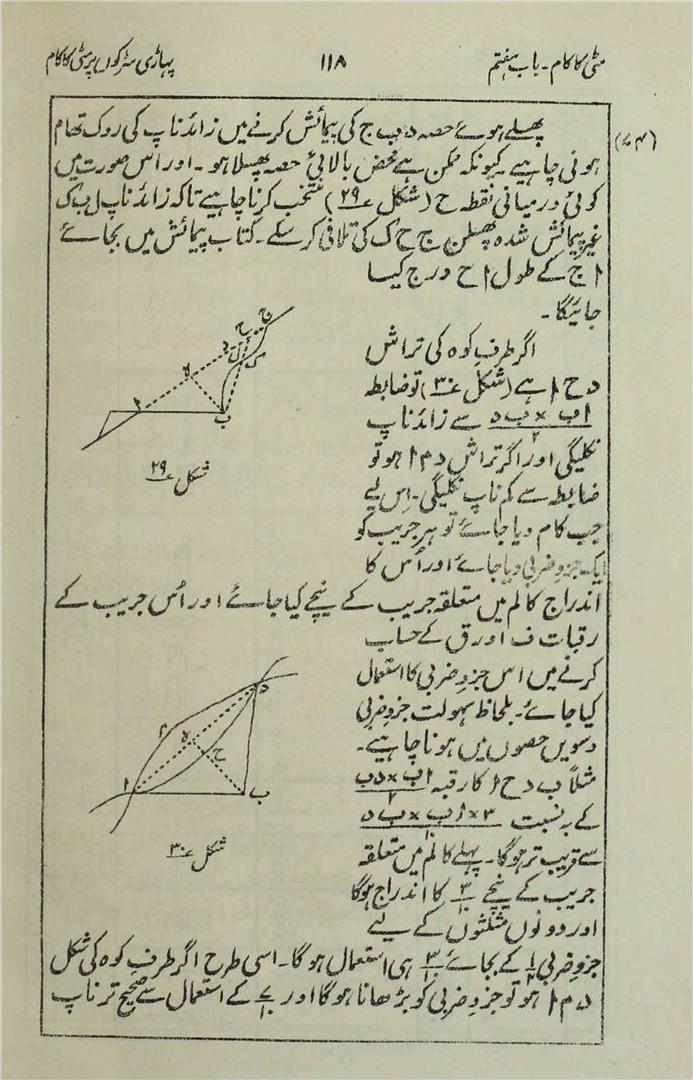 مٹی کا کام۔ باب ہفتم ۱۱۸ پہاڑی سڑکوں پر مٹی کا کام
(۷۴) پھیلے ہوئے حصہ د ب ج کی پیمائش کرنے میں زائد ناپ کی روک تھام
ہونی چاہیے۔ کیونکہ ممکن ہے محض بالائی حصہ پھسلا ہو۔ اور اس صورت میں
کوئی درمیانی نقطہ ح (شکل ۲۹) منتخب کرنا چاہیے تاکہ زائد ناپ ل ب ک
غیر پیمائش شدہ پھسلن ج ح ک کی تلافی کر سکے۔ کتاب پیمائش میں بجائے
ا ج کے طول ا ح درج کیا
جائیگا۔
ج
ح
د
ل
ک
ہ
ا
ب
شکل ۲۹
اگر طرف کوہ کی تراش
د ح ا ہے (شکل ۳۰) تو ضابطہ
اب × ب ہ / ۲ سے زائد ناپ
نکلیگی اور اگر تراش د م ا ہو تو
ضابطہ سے کم ناپ نکلیگی۔ اِس لیے
جب کام دیا جائے تو ہر جریب کو
ایک جزو ضربی دیا جائے اور اُس کا
اندراج کالم میں متعلقہ جریب کے نیچے کیا جائے اور اُس جریب کے
رقبات ف اور ق کے حساب
کرنے میں اس جزو ضربی کا استعمال
کیا جائے۔ بلحاظ سہولت جزو ضربی
دسویں حصوں میں ہونا چاہیے۔
مثلاً ب د ح ا کا رقبہ اب × د ب / ۲
کے بہ نسبت ۳ × اب × ب ہ / ۱۰
سے قریب تر ہوگا۔ پہلے کالم میں متعلقہ
جریب کے نیچے ۳/۱۰ کا اندراج ہوگا
اور دونوں مثلثوں کے لیے
د
م
ہ
ح
ا
ب
شکل ۳۰
جزو ضربی ۱/۲ کے بجائے ۳/۱۰ ہی استعمال ہوگا۔ اسی طرح اگر طرف کوہ کی شکل
د م ا ہو تو جزو ضربی کو بڑھانا ہوگا اور ۷/۱۰ کے استعمال سے صحیح تر ناپ